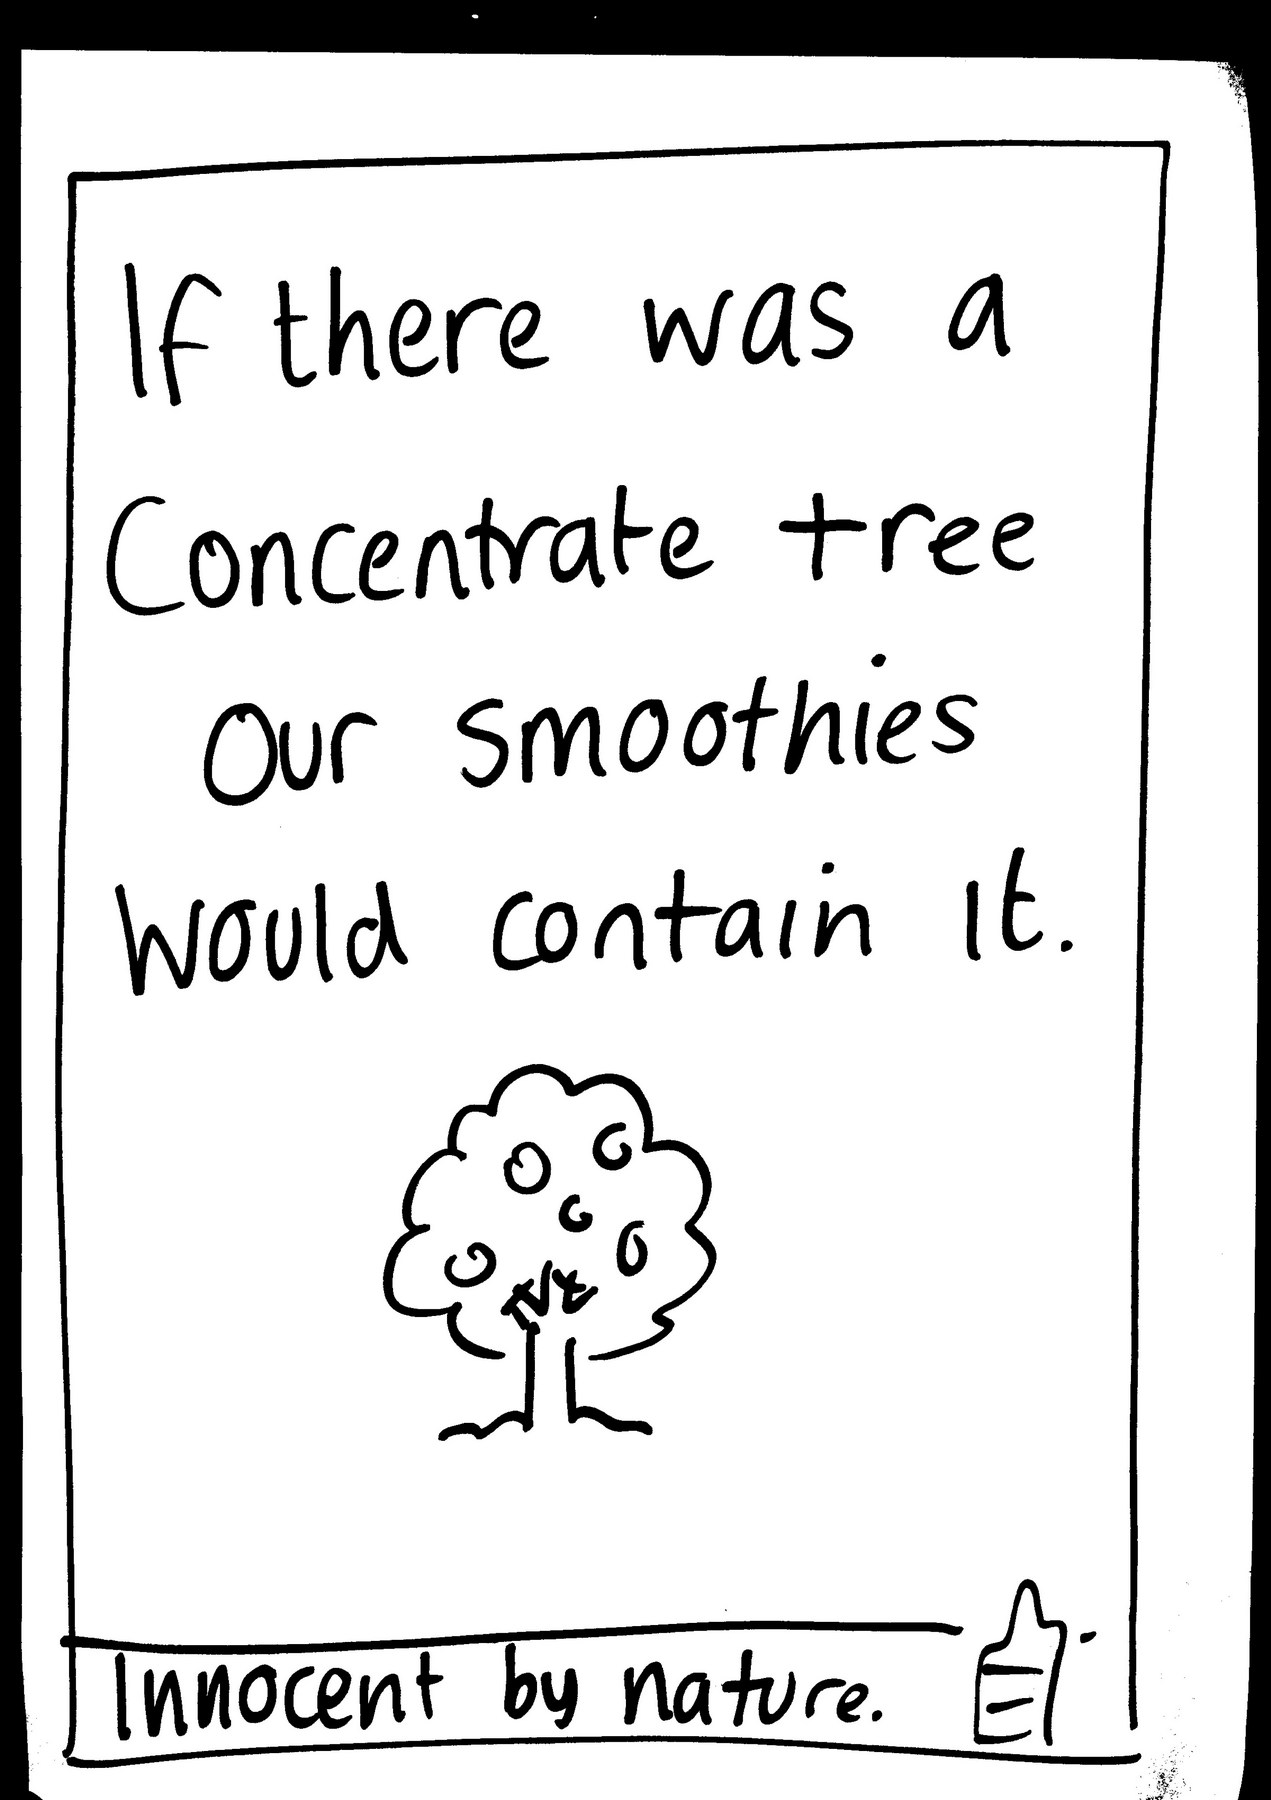 If there was a
Concentrate tree
Our smoothies
would contain it.
Innocent by nature.